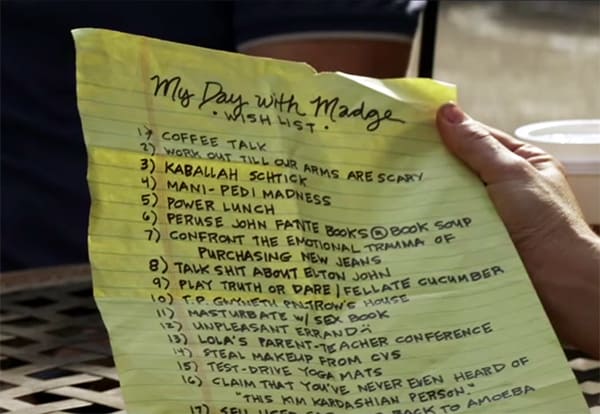 My Day with Madge
• WISH LIST •
1) COFFEE TALK
2) WORK OUT TILL OUR ARMS ARE SCARY
3) KABALLAH SCHTICK
4) MANI-PEDI MADNESS
5) POWER LUNCH
6) PERUSE JOHN FANTE BOOKS @ BOOK SOUP
7) CONFRONT THE EMOTIONAL TRAUMA OF
PURCHASING NEW JEANS
8) TALK SHIT ABOUT ELTON JOHN
9) PLAY TRUTH OR DARE / FELLATE CUCUMBER
10) T.P. GWYNETH PALTROW'S HOUSE
11) MASTURBATE W/ SEX BOOK
12) UNPLEASANT ERRAND
13) LOLA'S PARENT-TEACHER CONFERENCE
14) STEAL MAKEUP FROM CVS
15) TEST-DRIVE YOGA MATS
16) CLAIM THAT YOU'VE NEVER EVEN HEARD OF
"THIS KIM KARDASHIAN PERSON."
17) SELL USED BACK TO AMOEBA